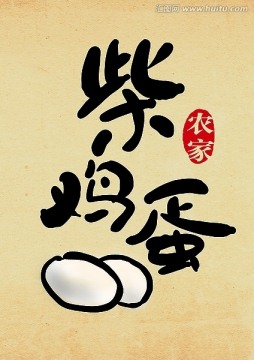 汇图网
www.huitu.com
柴
农家
鸡
蛋